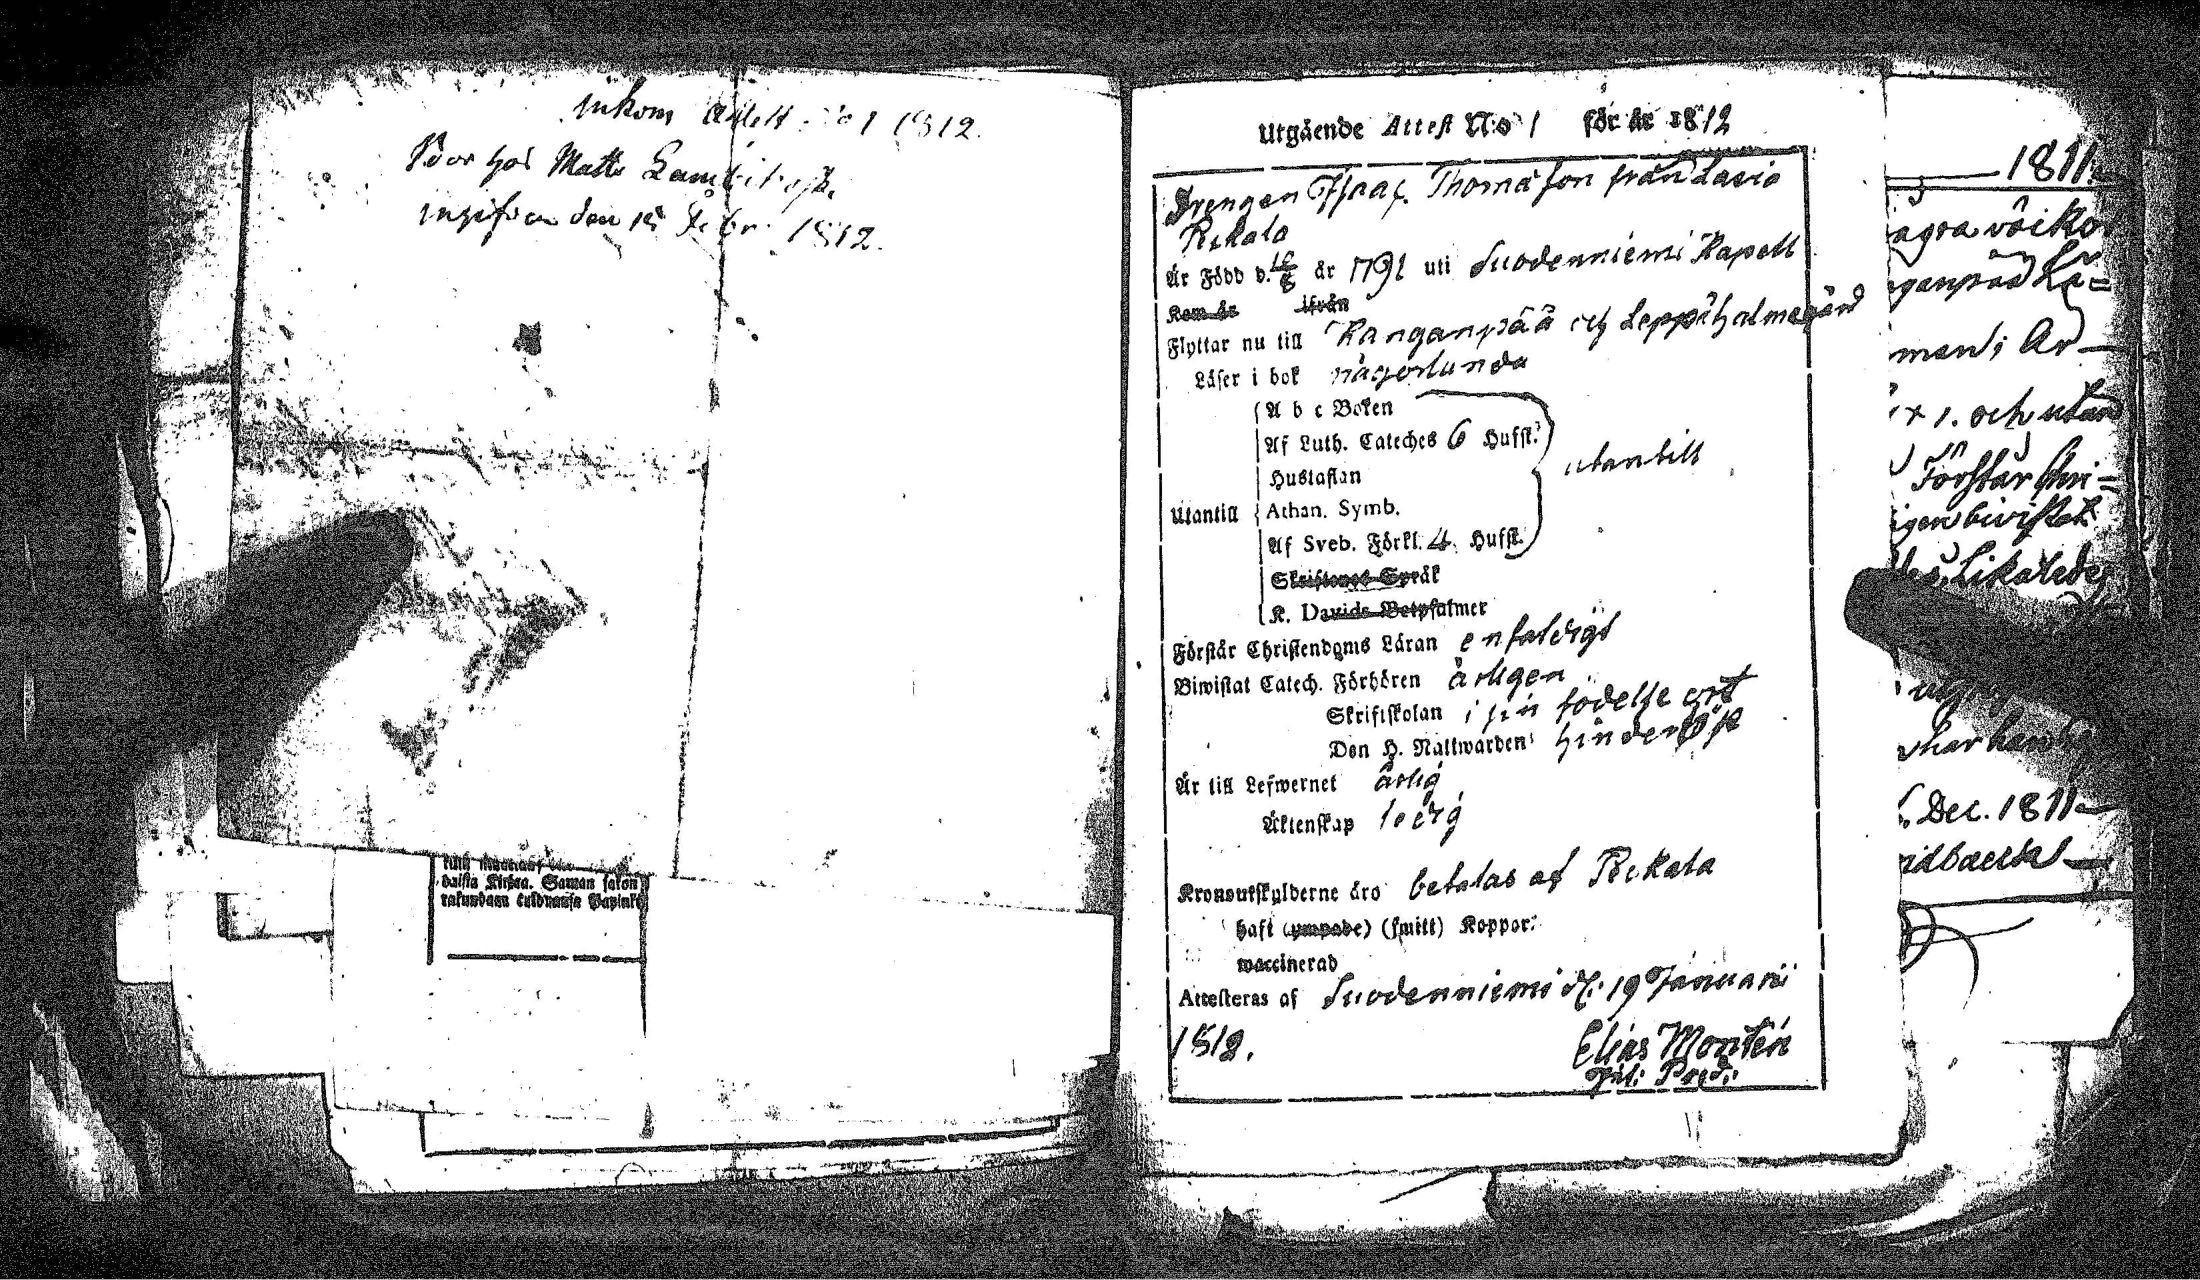 inkom Attest No 1 1812.
Boor hos Matts
den 15 Febr. 1812.
halsta Kirkaa. Saman
Utgående Attest N:o 1 för år 1812
Drengen Isaac Thomasson från Lavia
Rekala
Är Född d. 10/8 år 1791 uti Suodenniemi Kapell
Kom år ifrån
Flyttar nu till Kanganpää och Leppäholmegård
Läser i bok någorlunda
A b c Boken
Af Luth. Cateches 6 Hufst.
Hustaflan
utantill
Utantill
Athan. Symb.
Af Sveb. Förkl. 4 Hufst.
Skriftenes Språk
K. Davids Botpsalmer
Förstår Christendoms Läran enfaldigt
Biwistat Catech. Förhören årligen
Skriftskolan i sin födelse ort
Den H. Nattwarden hinderlös
Är till Lefwernet ärlig
Äktenskap ledig
Kronoutskylderne äro betalas af Rekala
haft (ympade) (smitt) Koppor.
waccinerad
Attesteras af Suodenniemi d. 19 Januarii
1812.
Elias Montén
1811.
agra wåiko
ganpää
men i Ar
1. och utan
Förstår Chri-
igen biwistat
Likaledes
har han
Dec. 1811